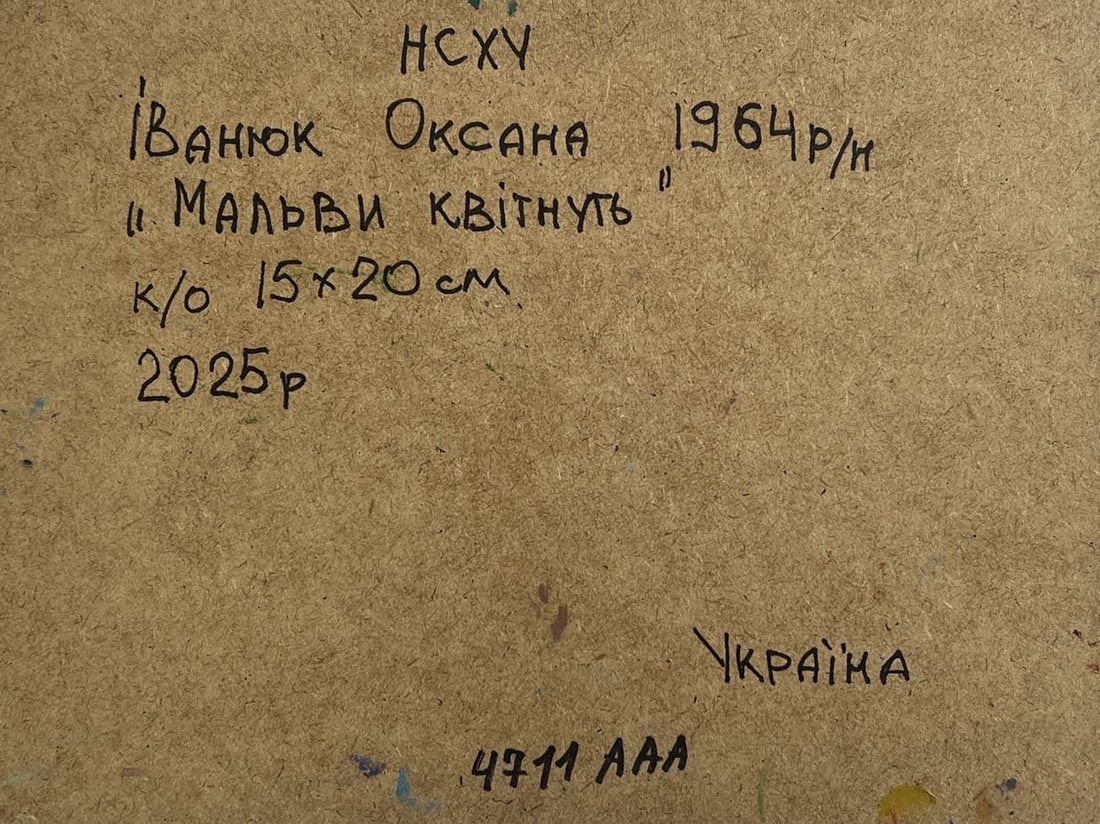 НСХУ
Іванюк Оксана 1964 р/н
„Мальви квітнуть"
к/о 15х20 см
2025р
Україна
4711 ААА